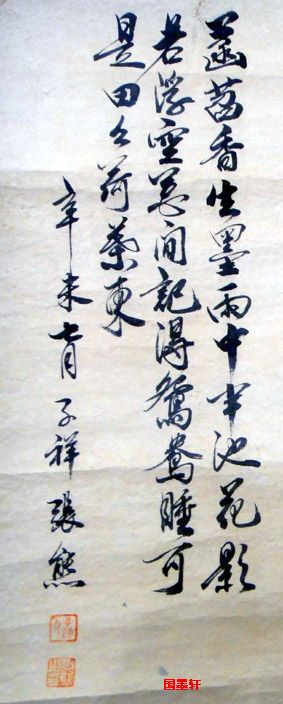 菡萏香生墨雨中半池花影
若浮空間記得鴛鴦睡可
是田々荷葉東
辛未七月子祥張熊